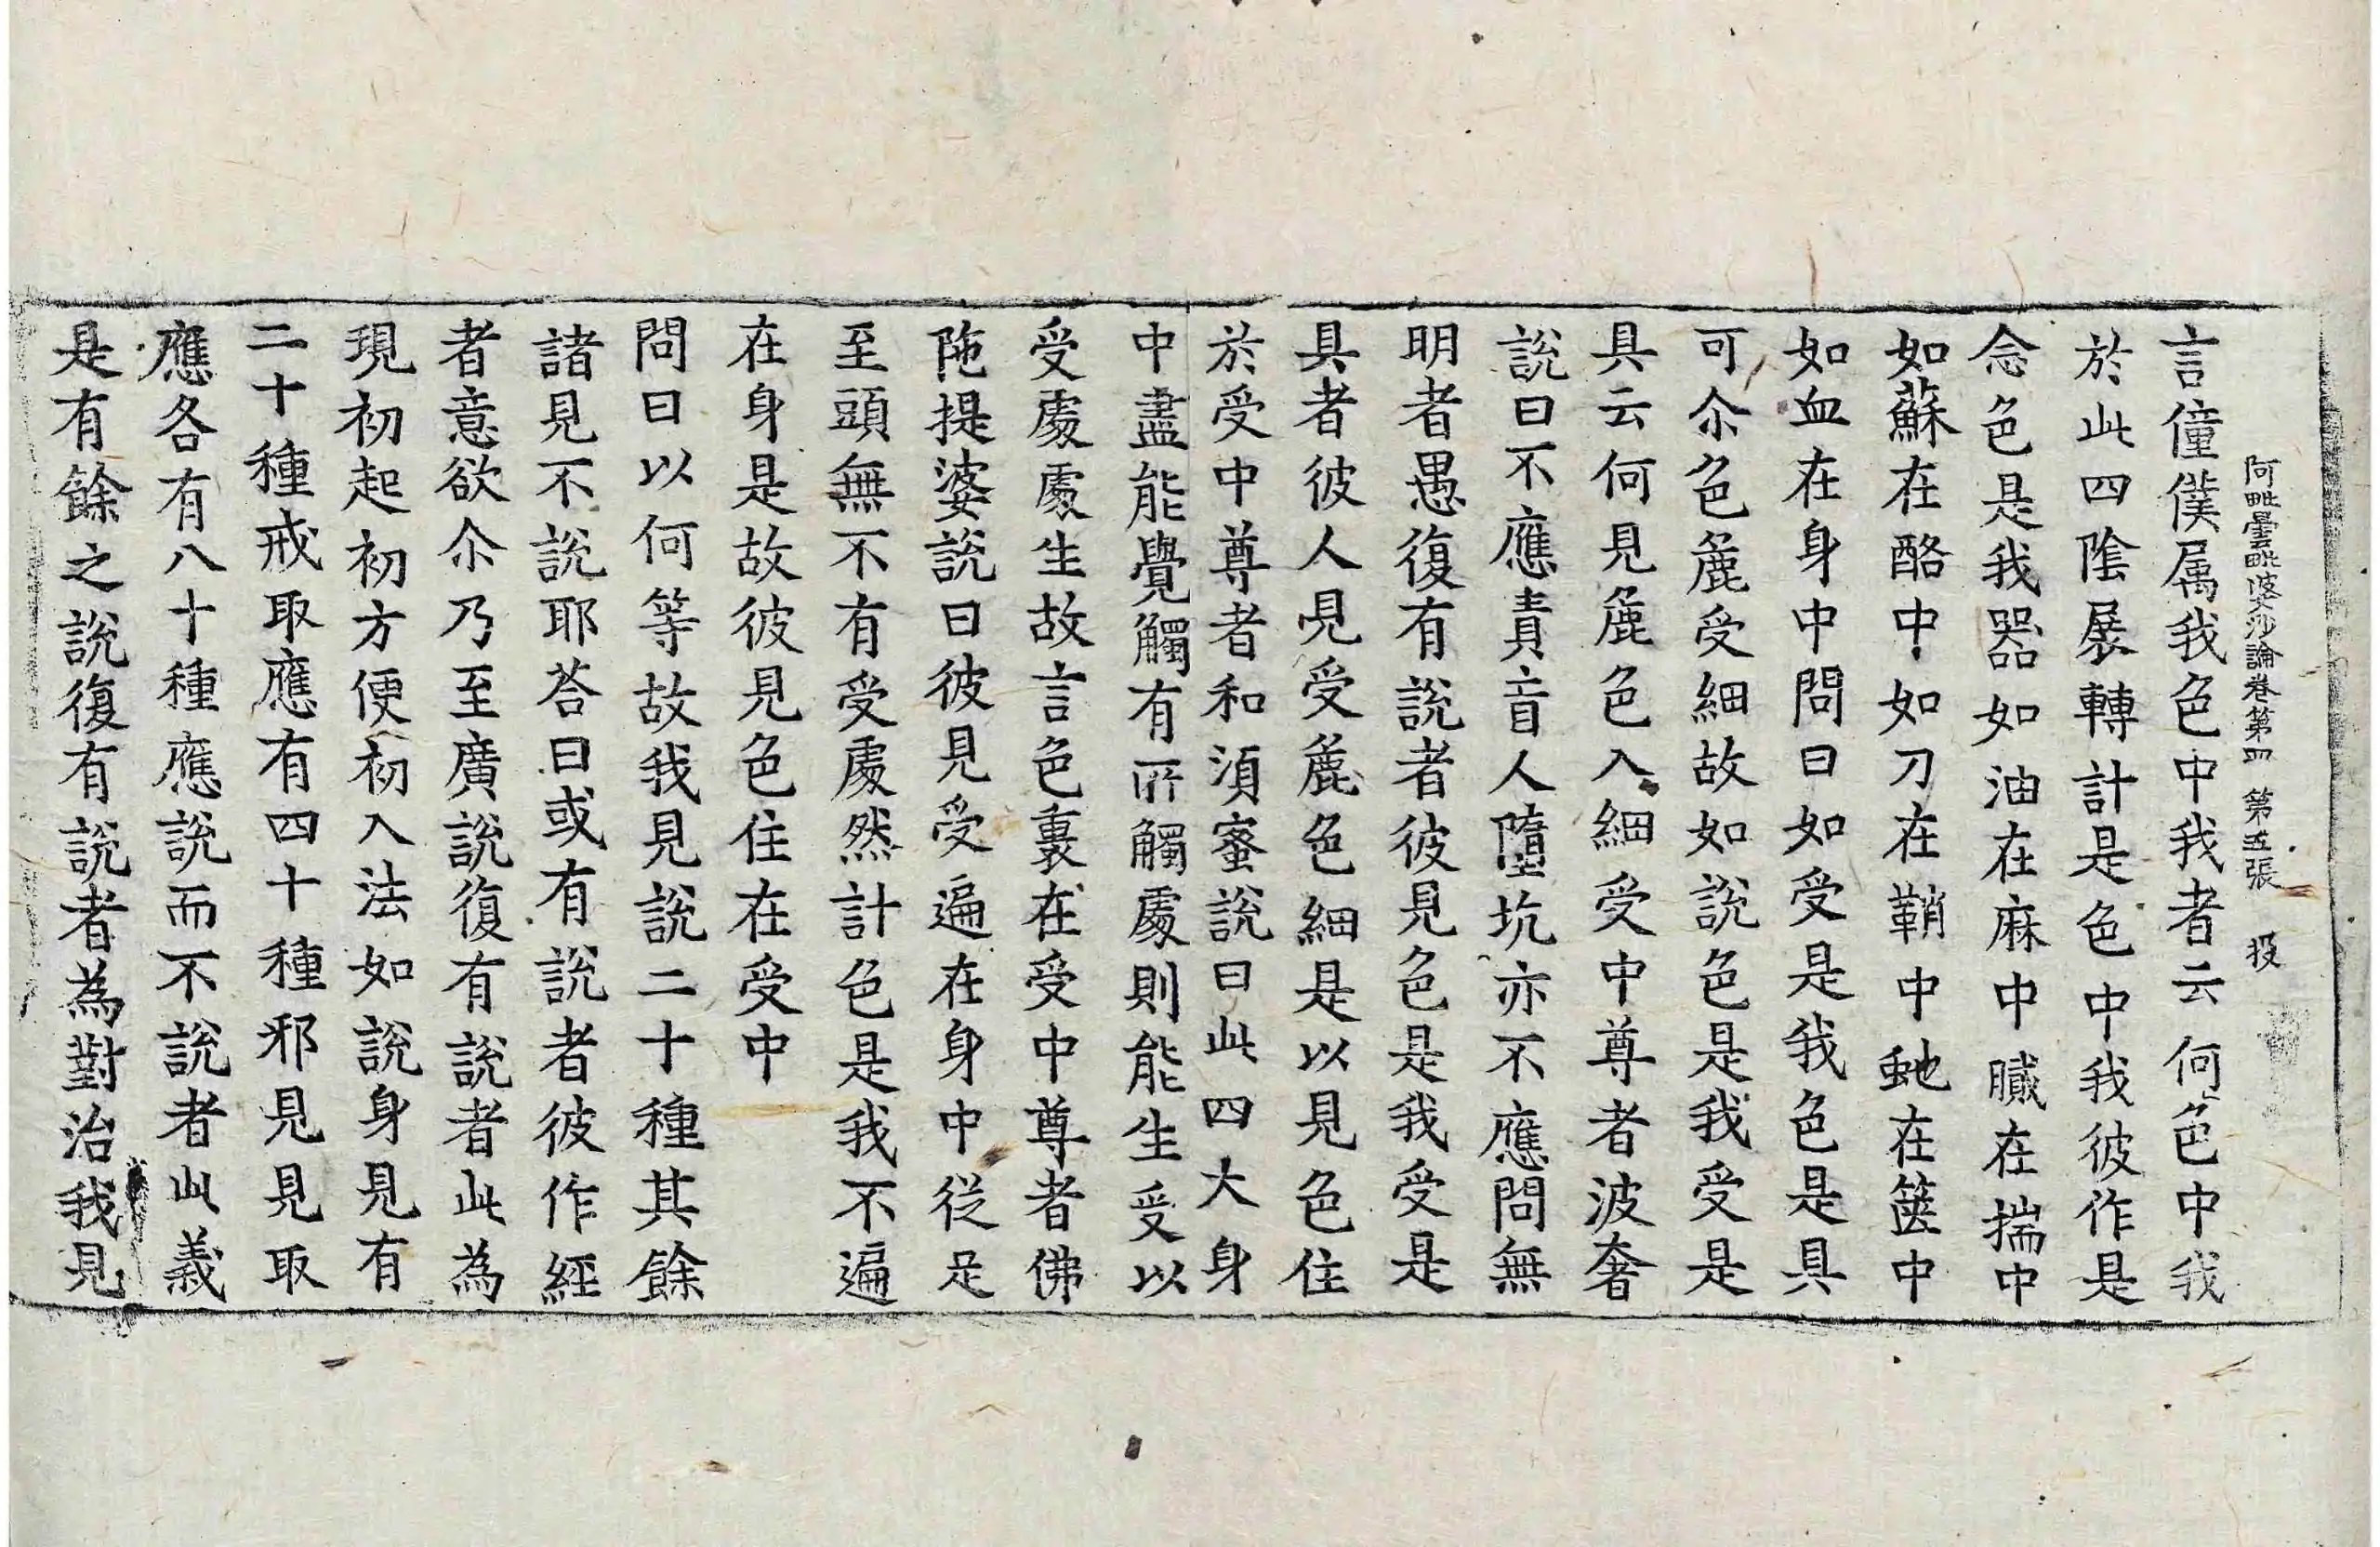 阿毗曇毗婆沙論卷第四　第五張　投
言僮僕属我色中我者云何色中我
於此四陰展轉計是色中我彼作是
念色是我器如油在麻中膩在揣中
如蘇在酪中如刀在鞘中虵在篋中
如血在身中問曰如受是我色是具
可尒色麁受細故如說色是我受是
具云何見麁色入細受中尊者波奢
說曰不應責盲人墮坑亦不應問無
明者愚復有說者彼見色是我受是
具者彼人見受麁色細是以見色住
於受中尊者和須蜜說曰此四大身
中盡能覺觸有所觸處則能生受以
受處處生故言色裏在受中尊者佛
陁提婆說曰彼見受遍在身中從足
至頭無不有受處然計色是我不遍
在身是故彼見色住在受中
問曰以何等故我見說二十種其餘
諸見不說耶荅曰或有說者彼作經
者意欲尒乃至廣說復有說者此為
現初起初方便初入法如說身見有
二十種戒取應有四十種邪見見取
應各有八十種應說而不說者此義
是有餘之說復有說者為對治我見